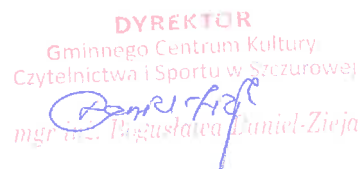 DYREKTOR
Gminnego Centrum Kultury
Czytelnictwa i Sportu w Szczurowej
mgr inż. Bogusława Daniel-Zieja